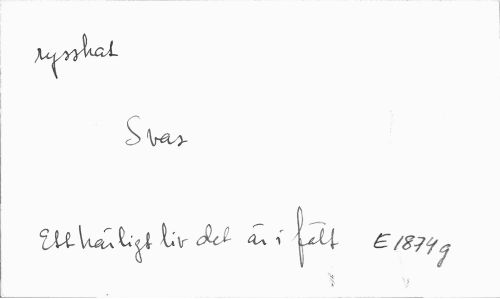 rysshat
Svar
Ett härligt liv det är i fält E 1874g